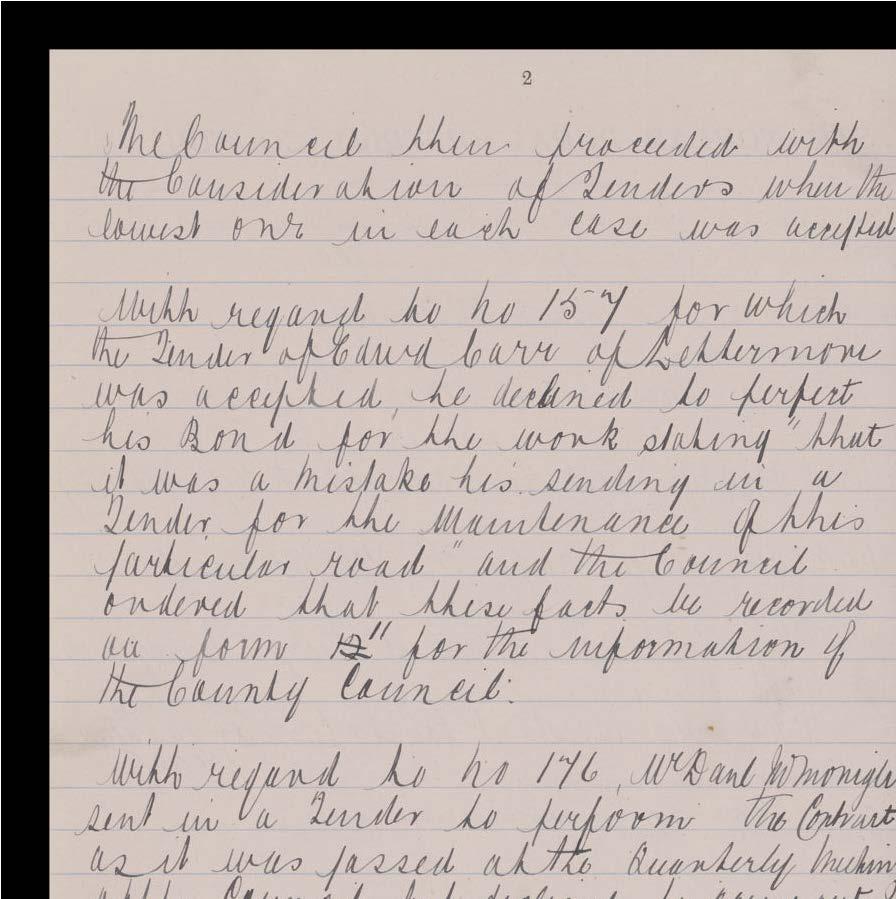 2
The Council then proceeded with
the Consideration of Tenders when the
lowest one in each case was accepted
With regard to no 157 for which
the Tender of Edwd Carr of Lettermore
was accepted, he declined to perfect
his Bond for the work stating "that
it was a mistake his sending in a
Tender for the Maintenance of this
particular road" and the Council
ordered that these facts be recorded
on form 12" for the information of
the County Council.
With regard to no 176, Mr Danl
sent in a Tender to perform the Contract
as it was passed at the Quarterly Meetin
Council